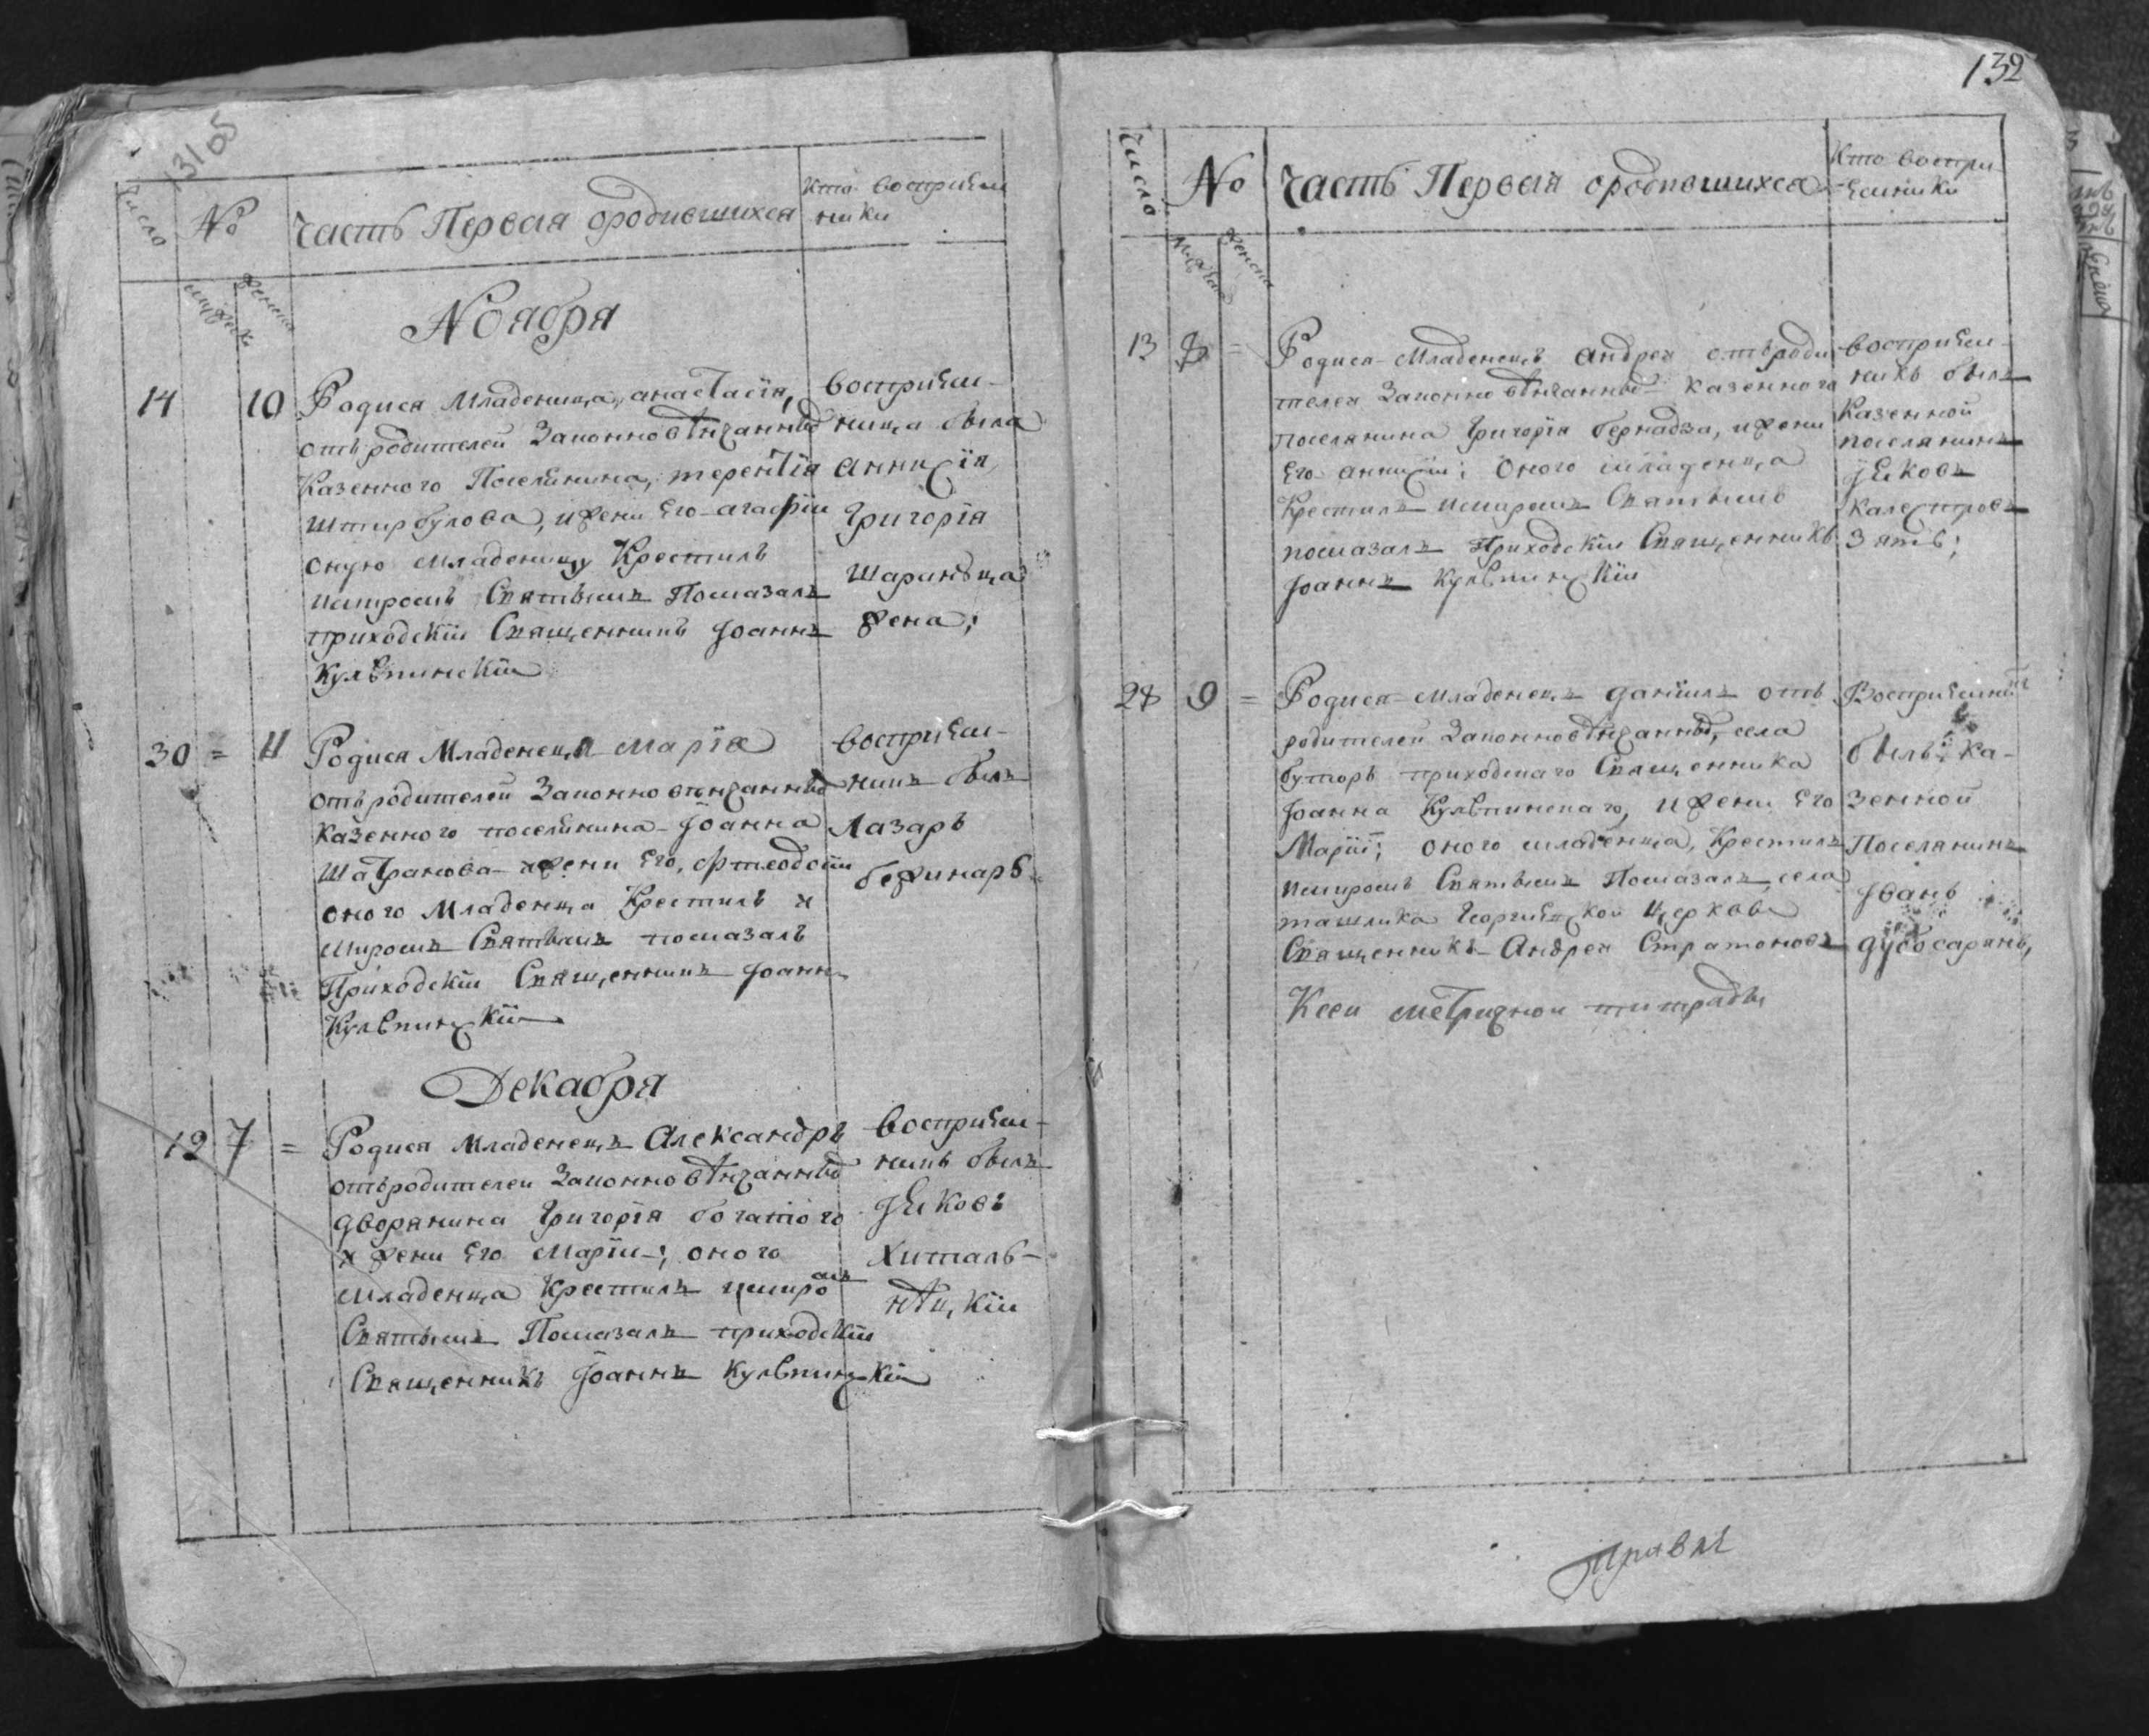 131 об
Число
№
Часть Первая ородившихся
Кто восприем
ники
мужеск
женска
Ноября
14
10
Родися Младеница, анастасія,
отъ родителей Законновѣнчанныхъ
Казенного Поселянина, терентія
Штирбулова, ижени Его агафіи
оную младеницу Крестилъ
имиромъ Святымъ Помазалъ
приходскій Священникъ Іоаннъ
Кульпинскій
восприем-
ница была
анниція
Григорія
Шаранѣца
жена;
30 = 11
Родися Младенеца Марія
отъ родителей Законновѣнчанныхъ
казенного поселянина Іоанна
Шатранова ижени Его, фтеодосіи
оного Младенца Крестилъ и
Миромъ Святымъ помазалъ
Приходскій Священникъ Іоаннъ
Кульпинцкій
восприем-
никъ былъ
Лазаръ
бежинаръ
Декабря
12 7 =
Родися Младенецъ Александръ
отъродителей Законновѣнчанныхъ
дворянина Григорія богатого
и жени Его Маріи; оного
младенца Крестилъ имиромъ
Святымъ Помазалъ приходскій
Священникъ Іоаннъ Кульпинцкій
восприем-
никъ былъ
Іяковъ
Хиталь-
нѣцкій
132
Число
№
Часть Первая ородившихся
Кто воспри-
емники
мужеска
женска
13 8 =
Родися Младенецъ андрей отъроди
телей Законновѣнчанныхъ казенного
поселянина Григорія бернадза, ижени
Его анниціи; оного младенца
Крестилъ имиромъ Святымъ
помазалъ Приходскій Священникъ
Іоаннъ Кульпинцкій
восприем-
никъ былъ
Казенной
поселянинъ
Іяковъ
Калестровъ
Зять;
28 9 =
Родися младенецъ даніилъ отъ
родителей Законновѣнчанныхъ, села
буторъ приходскаго Священника
Іоанна Кульпинскаго, ижени Его
Маріи; оного младенца, Крестилъ
имиромъ Святымъ Помазалъ, села
ташлика Георгіевской Церкви
Священникъ Андрей Стратоновъ
Восприемникъ
былъ: ка-
зенной
Поселянинъ
Іванъ
дубосарянъ,
Ксеи метричнои титрады